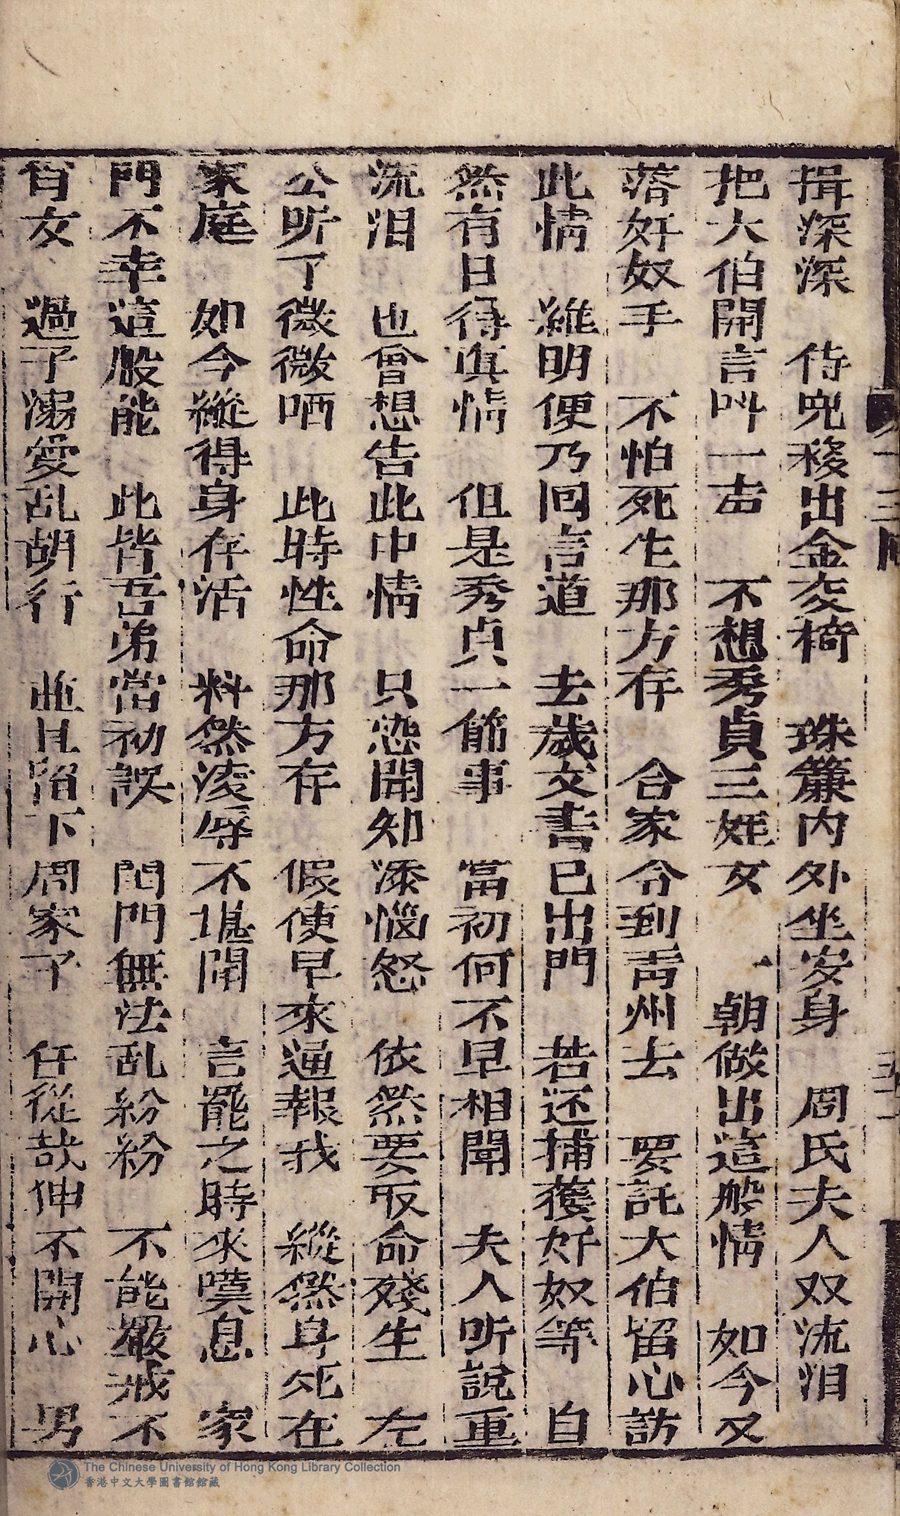 揖深深　待児移出金交椅　珠簾内外坐安身　周氏夫人双流泪
把大伯開言叫一声　不想秀貞三姪女　一朝做出這般情　如今又
落奸奴手　不怕死生那方存　合家令到青州去　要託大伯留心訪
此情　維明便乃囘言道　去歲文書已出門　若还捕獲奸奴等　自
然有日得真情　但是秀貞一節事　當初何不早相聞　夫人听說重
流泪　也曾想告此中情　只恐聞知添惱怒　依然要取命殘生　左
公听了微微哂　此時性命那方存　假使早來通報我　縱然身死在
家庭　如今縱得身存活　料然凌辱不堪聞　言罷之時來嘆息　家
門不幸這般能　此皆吾弟當初誤　閨門無法乱紛紛　不能嚴戒不
肖女　過于溺愛乱胡行　並且陷下周家子　任從哉伸不開心　男
十三囘
五十一
The Chinese University of Hong Kong Library Collection
香港中文大學圖書館館藏